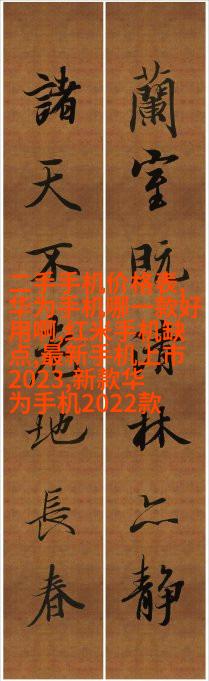 蘭室既林亦静
諸天不地長春
二手手机价格表,
华为手机哪一款好
用啊,红米手机缺
点,最新手机上市
2023,新款华
为手机2022款